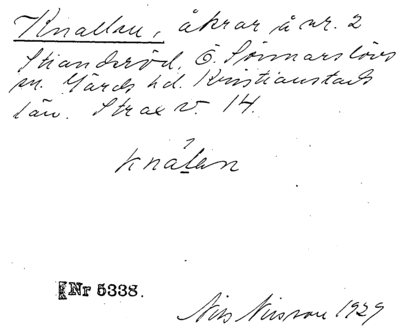 Knallen, åkrar å nr. 2
Strandröd, Ö. Sönnarslövs
sn. Gärds hd. Kristianstads
län. Strax v. 14.
knálan
Nr 5338.
Nils Nilsson 1929